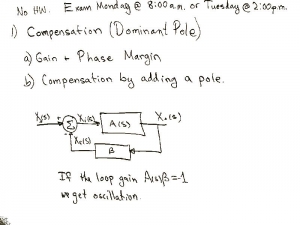 No HW. Exam Monday @ 8:00 a.m. or Tuesday @ 2:00p.m.
1) Compensation (Dominant Pole)
a) Gain + Phase Margin
b) Compensation by adding a pole.
Xi(s) + Σ Xε(s) A(s) Xo(s)
Xf(s) β
If the loop gain A(s)β=-1
we get oscillation.